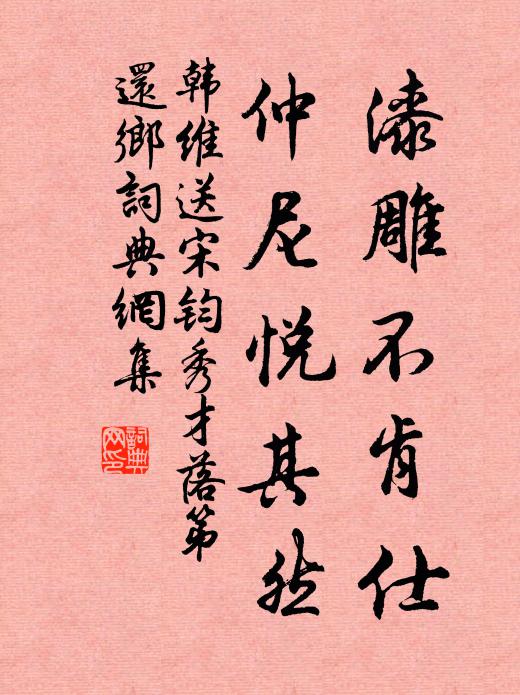 漆雕不肯仕
仲尼悦其然
韩维送宋钧秀才落第
還鄉詞典網集
詞典网印